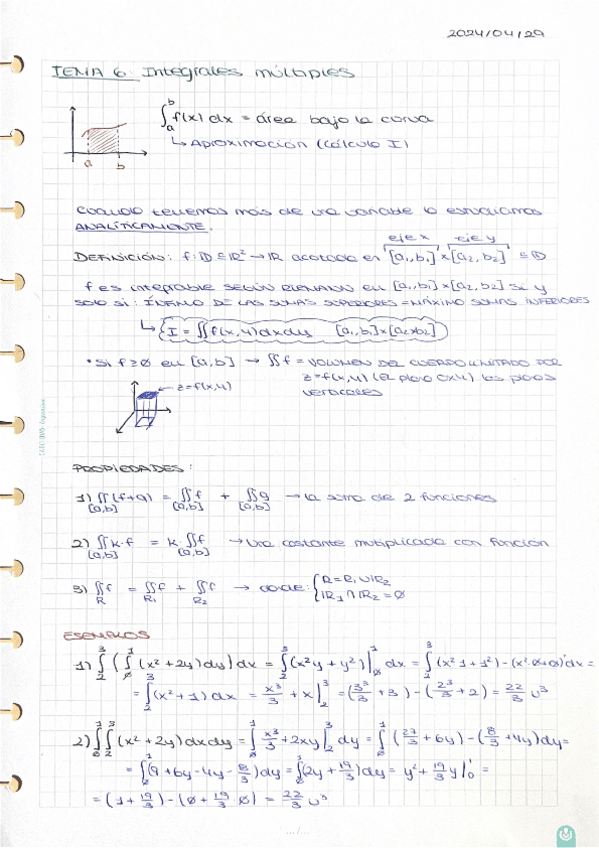 2024/04/29
TEMA 6: Integrales múltiples
∫_a^b f(x) dx = área bajo la curva
↳ Aproximación (Cálculo I)
a b
cuando tenemos más de una variable lo estudiamos
ANALÍTICAMENTE.
eje x eje y
DEFINICIÓN: f: D ⊆ ℝ² → ℝ acotada en [a₁,b₁]×[a₂,b₂] ⊆ D
f es integrable SEGÚN RIEMANN en [a₁,b₁]×[a₂,b₂] si y
solo si: ÍNFIMO DE LAS SUMAS SUPERIORES = MÁXIMO SUMAS INFERIORES
↳ {I = ∬f(x,y)dxdy [a₁,b₁]×[a₂×b₂]
• Si f ≥ 0 en [a,b] → ∬f = VOLUMEN DEL CUERPO LIMITADO POR
z=f(x,y) (el plano 0xy) los planos
verticales
z=f(x,y)
PROPIEDADES:
1) ∬(f+g) = ∬f + ∬g → la suma de 2 funciones
[a,b] [a,b] [a,b]
2) ∬k·f = k·∬f → una costante mutiplicada con función
[a,b] [a,b]
3) ∬f = ∬f + ∬f → donde: {R=R₁∪R₂
R R₁ R₂ R₁∩R₂=∅
EJEMPLOS
1) ∫_2^3 (∫_0^1 (x²+2y)dy)dx = ∫_2^3 (x²y+y²)|_0^1 dx = ∫_2^3 (x²·1+1²)-(x²·0+0)dx =
= ∫_2^3 (x²+1)dx = x³/3 + x|_2^3 = (3³/3 + 3) - (2³/3 + 2) = 22/3 u³
2) ∫_0^1 ∫_2^3 (x²+2y)dxdy = ∫_0^1 x³/3 + 2xy|_2^3 dy = ∫_0^1 (27/3 + 6y) - (8/3 + 4y)dy =
= ∫_0^1 (9+6y-4y-8/3)dy = ∫_0^1 (2y+19/3)dy = y² + 19/3 y|_0^1 =
= (1+19/3) - (0+19/3·0) = 22/3 u³